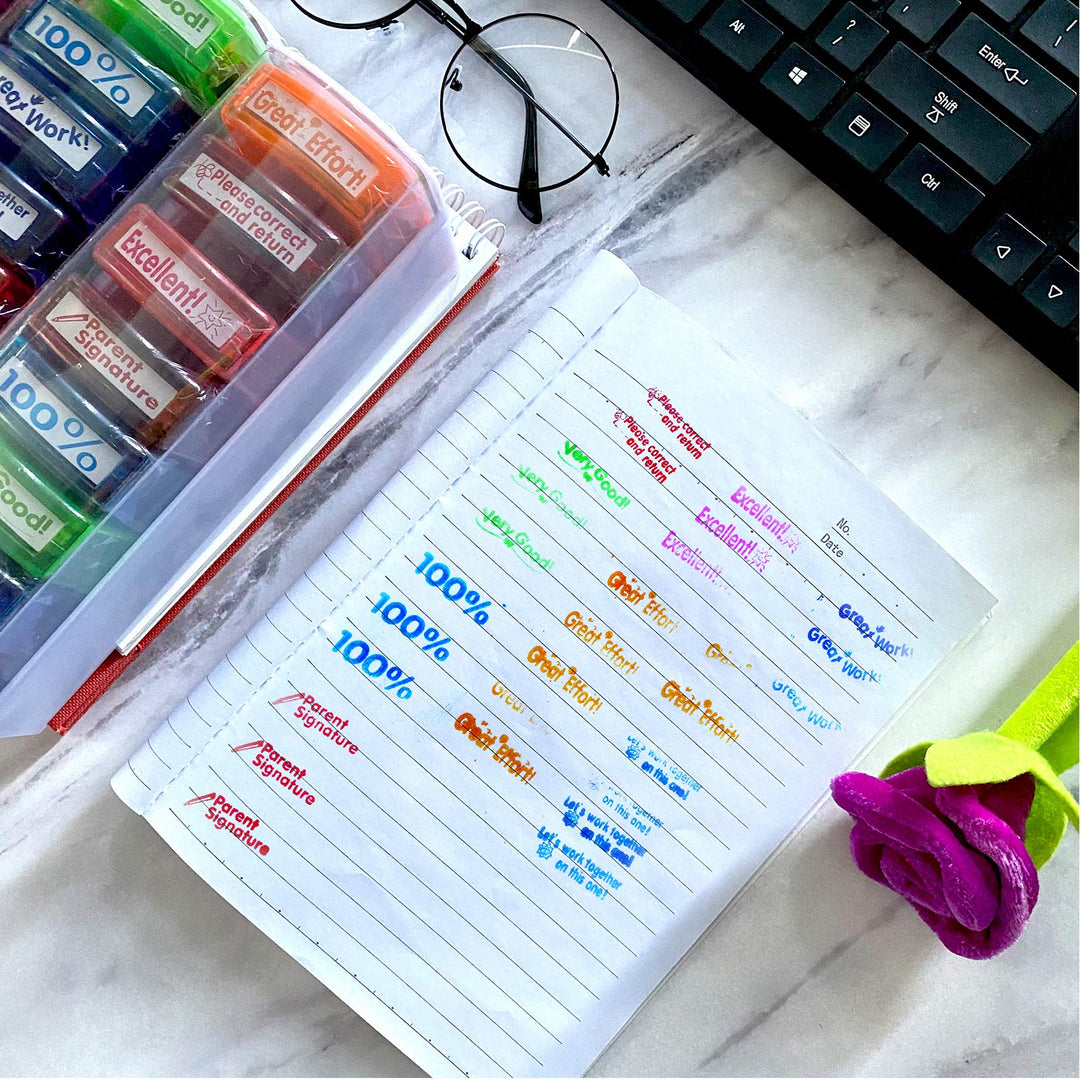 Good!
100%
Great Work!
together
Great Effort!
Please correct
and return
Excellent!
Parent
Signature
100%
Good!
Alt
?
/
Enter
Shift
Ctrl
Please correct
and return
Please correct
and return
Very Good!
Very Good!
Very Good!
Excellent!
Excellent!
Excellent!
No.
Date
100%
100%
100%
Great Effort!
Great Effort!
Great Effort!
Great E
Great Effort!
Great
Great Effort!
Great Work!
Great Work!
Great Work
Parent
Signature
Parent
Signature
Parent
Signature
Let's work together
on this one!
together
on this one!
Let's work together
on this one!
Let's work together
on this one!